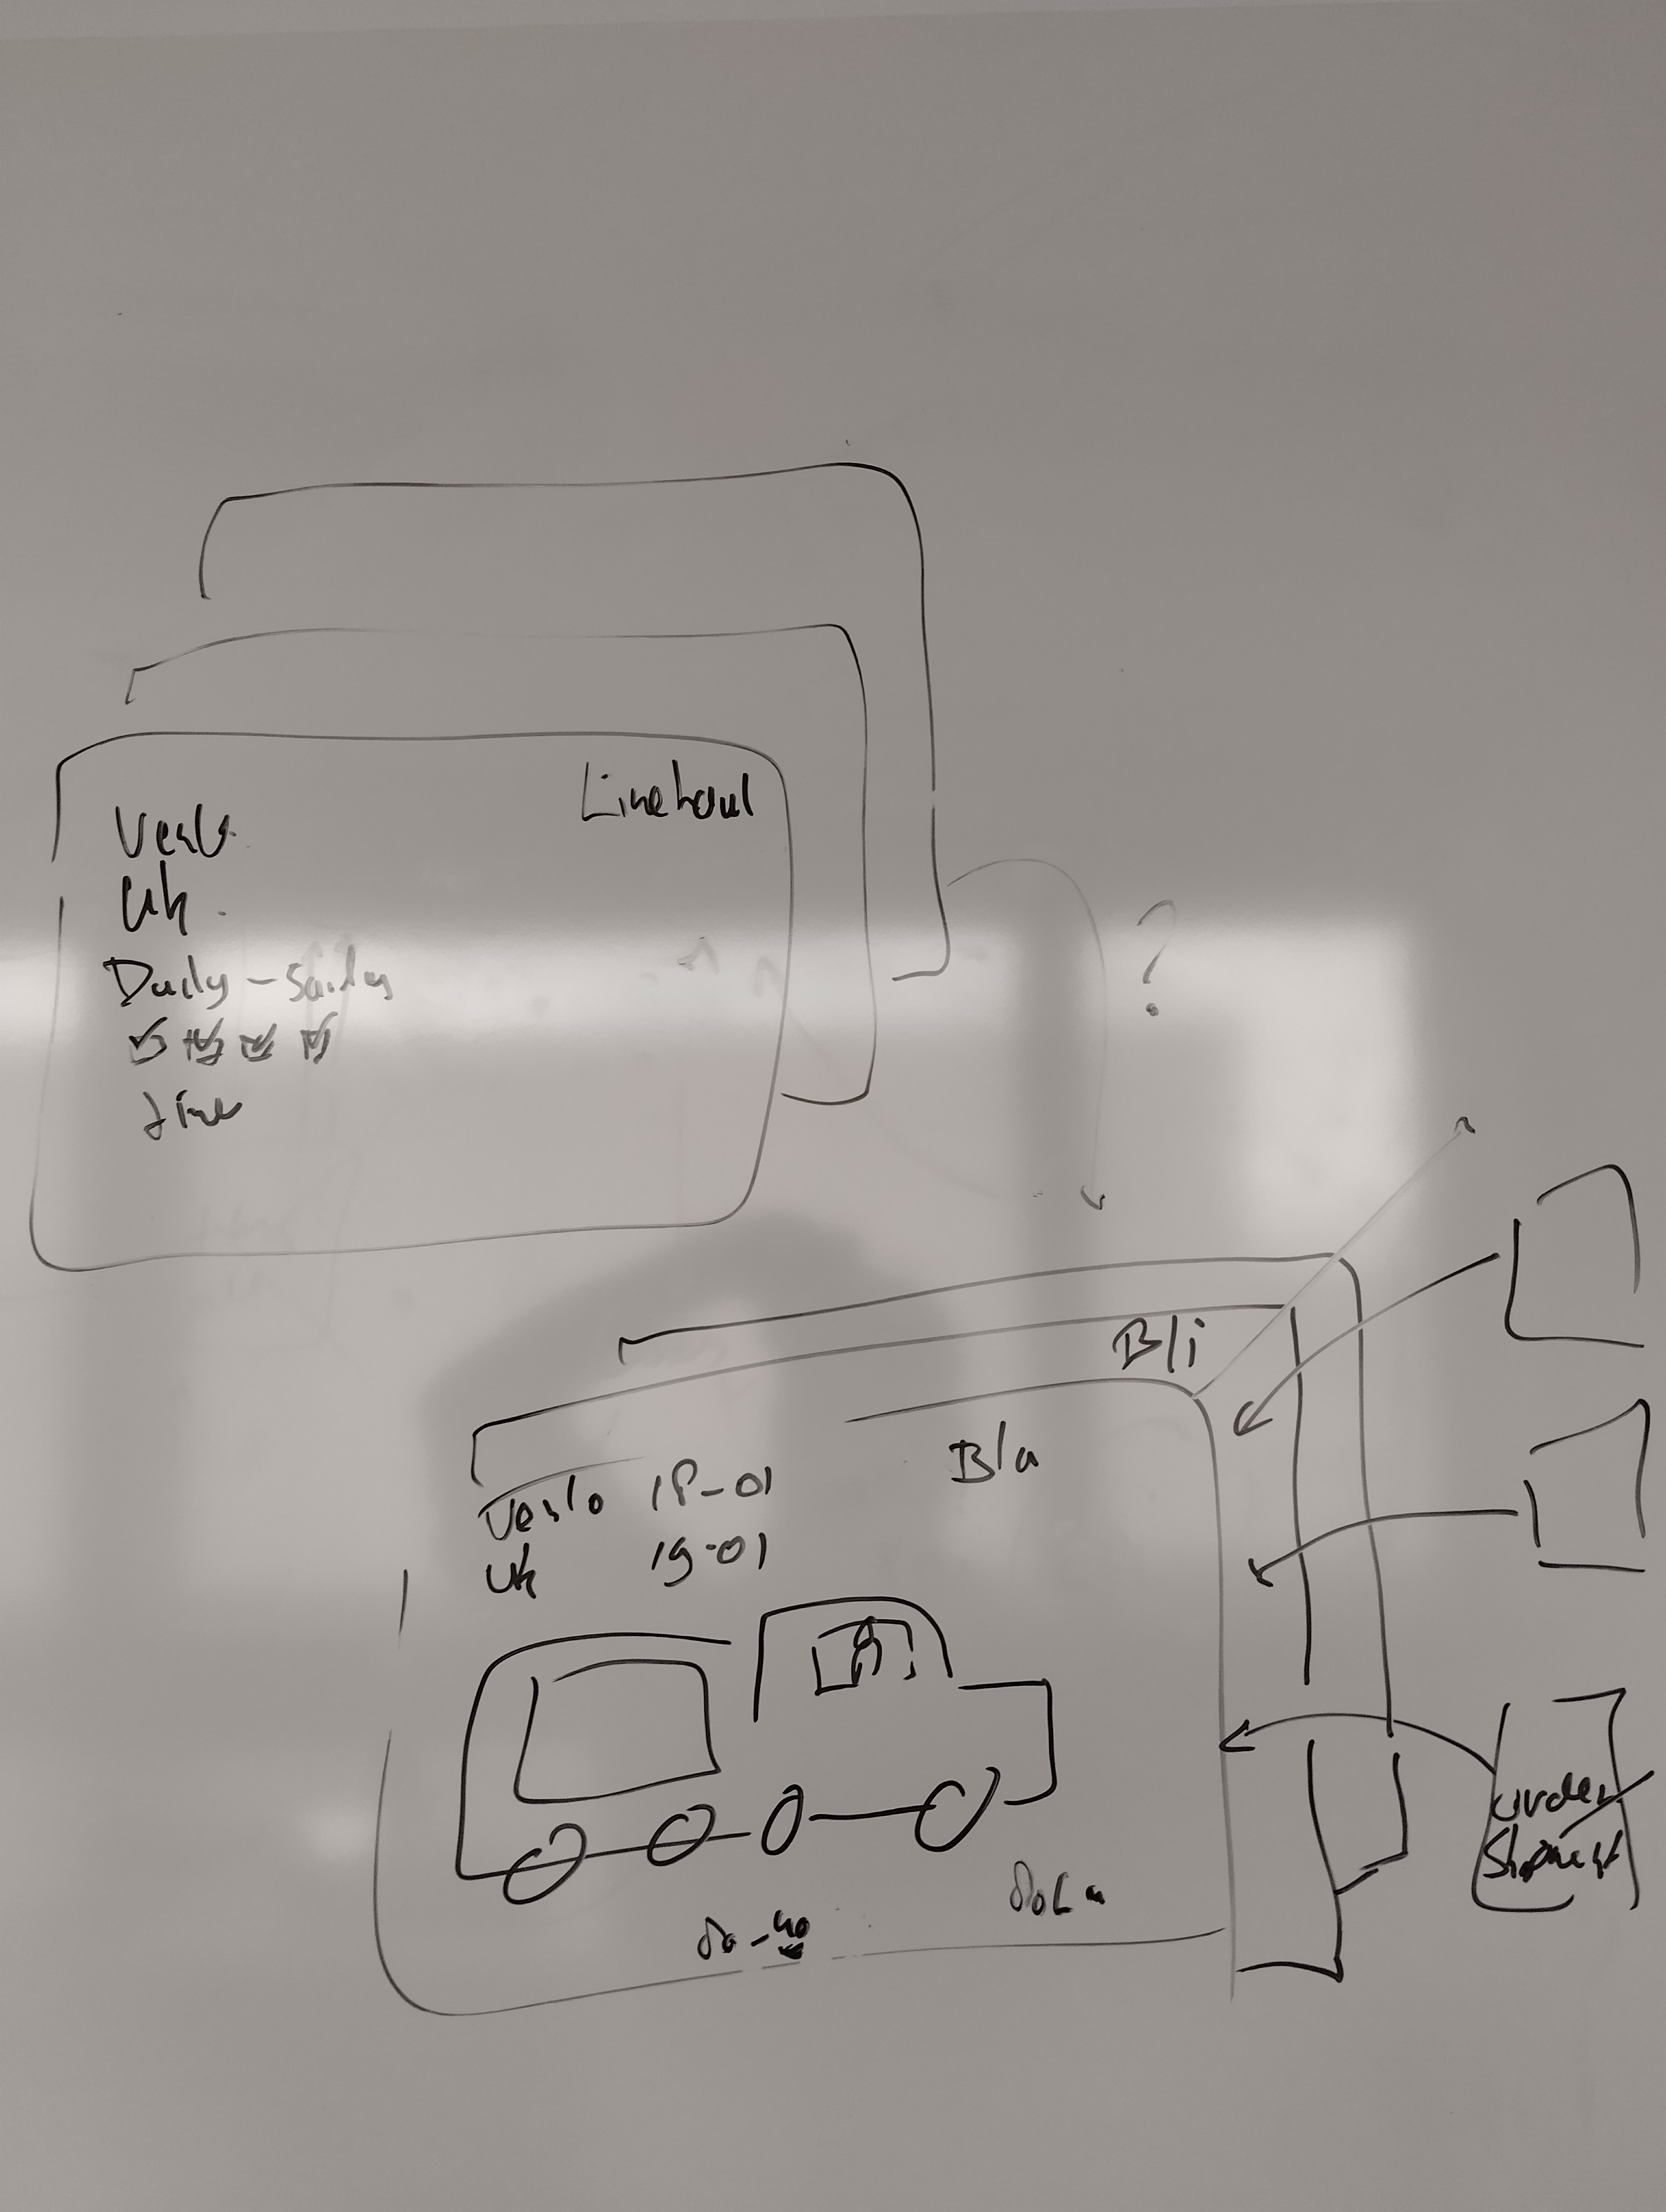 Linehaul
Venlo
Uk
Daily - 
time
?
Bli
Bla
Venlo 18-01
Uk 19-01
Order
Shipment